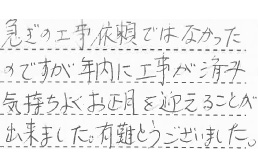 急ぎの工事依頼ではなかった
のですが年内に工事が済み
気持ちよくお正月を迎えることが
出来ました。有難とうございました。